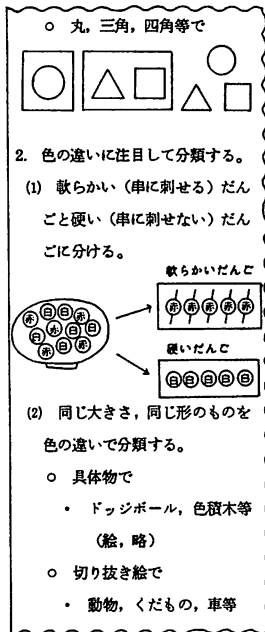 ○ 丸，三角，四角等で
2. 色の違いに注目して分類する。
(1) 軟らかい（串に刺せる）だん
ごと硬い（串に刺せない）だん
ごに分ける。
軟らかいだんご
赤 赤 赤 赤 赤
白 白 赤
赤 白
赤 白 白
赤 白 赤
硬いだんご
白 白 白 白 白
(2) 同じ大きさ，同じ形のものを
色の違いで分類する。
○ 具体物で
・ ドッジボール，色積木等
（絵，略）
○ 切り抜き絵で
・ 動物，くだもの，車等